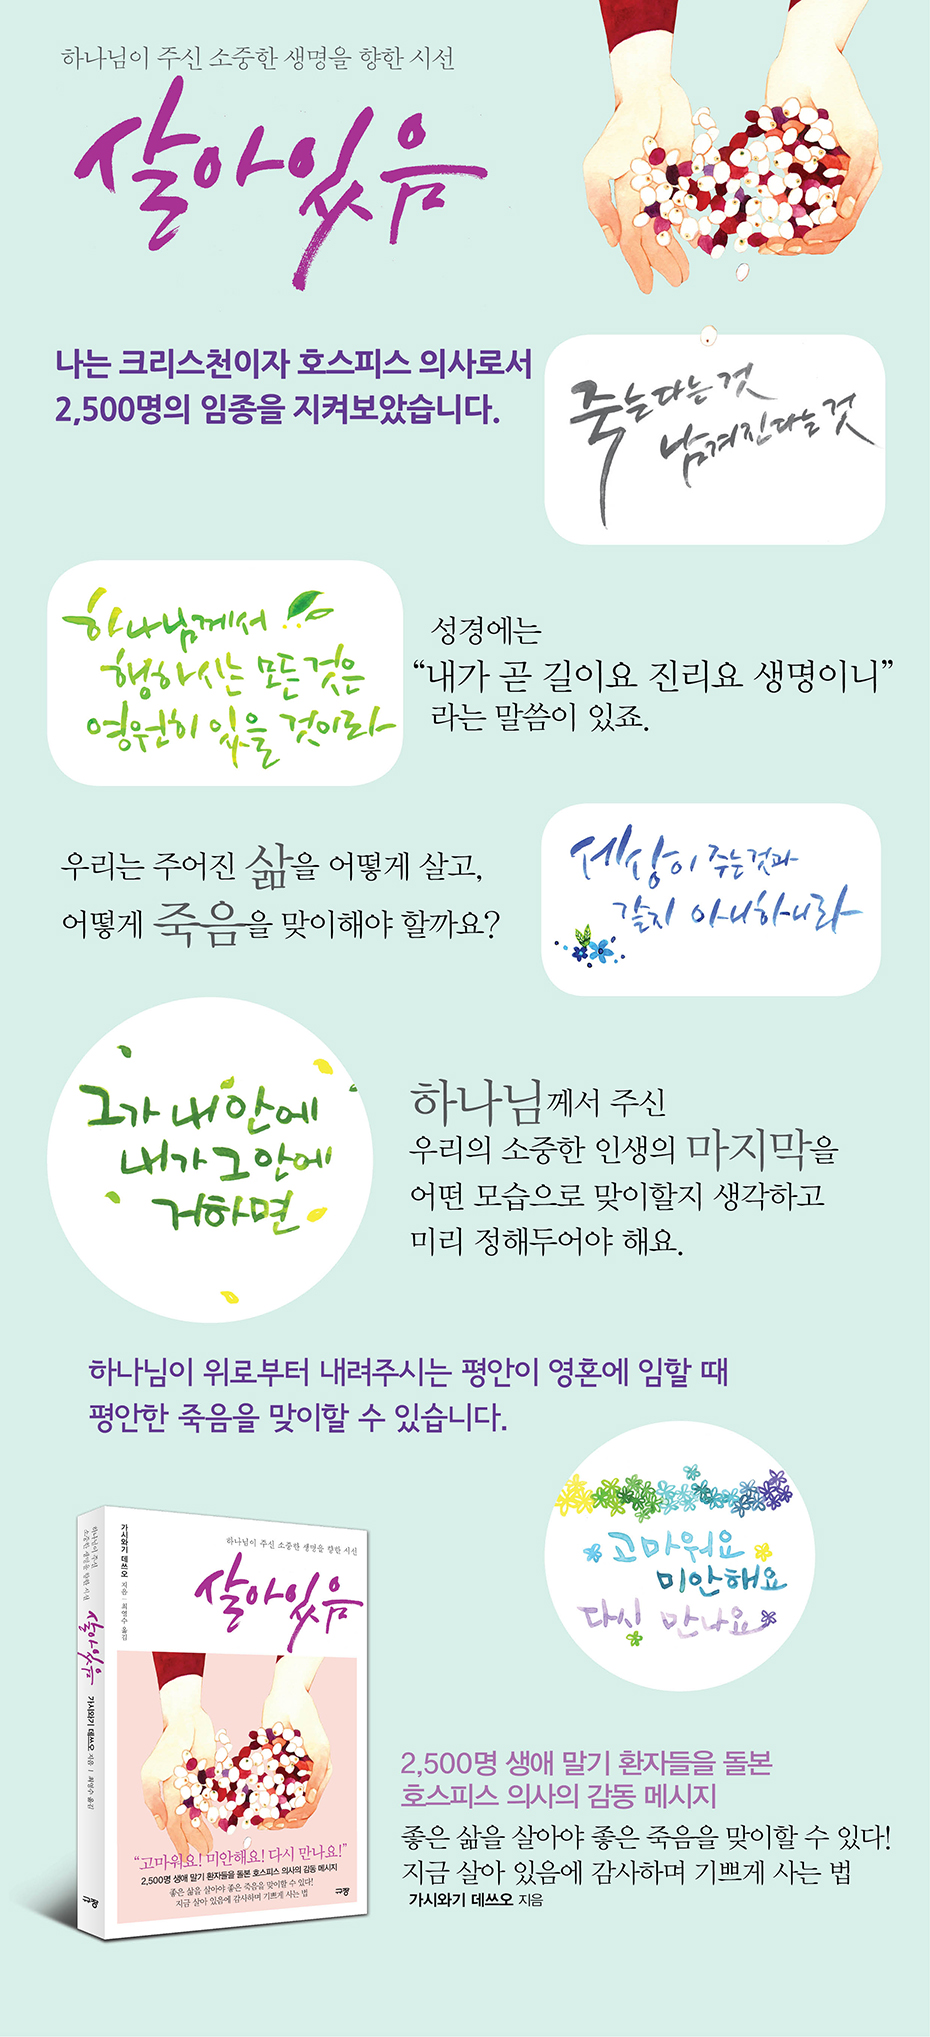 하나님이 주신 소중한 생명을 향한 시선
살아있음
나는 크리스천이자 호스피스 의사로서
2,500명의 임종을 지켜보았습니다.
죽는다는 것
남겨진다는 것
하나님께서
행하시는 모든 것은
영원히 있을 것이라
성경에는
“내가 곧 길이요 진리요 생명이니”
라는 말씀이 있죠.
우리는 주어진 삶을 어떻게 살고,
어떻게 죽음을 맞이해야 할까요?
세상이 주는 것과
같지 아니하니라
그가 내 안에
내가 그 안에
거하면
하나님께서 주신
우리의 소중한 인생의 마지막을
어떤 모습으로 맞이할지 생각하고
미리 정해두어야 해요.
하나님이 위로부터 내려주시는 평안이 영혼에 임할 때
평안한 죽음을 맞이할 수 있습니다.
고마워요
미안해요
다시 만나요
하나님이 주신
소중한 생명을 향한 시선
살아있음
가시와기 데쓰오 지음 | 최영수 옮김
규장
가시와기 데쓰오 지음 | 최영수 옮김
하나님이 주신 소중한 생명을 향한 시선
살아있음
“고마워요! 미안해요! 다시 만나요!”
2,500명 생애 말기 환자들을 돌본 호스피스 의사의 감동 메시지
좋은 삶을 살아야 좋은 죽음을 맞이할 수 있다!
지금 살아 있음에 감사하며 기쁘게 사는 법
규장
2,500명 생애 말기 환자들을 돌본
호스피스 의사의 감동 메시지
좋은 삶을 살아야 좋은 죽음을 맞이할 수 있다!
지금 살아 있음에 감사하며 기쁘게 사는 법
가시와기 데쓰오 지음